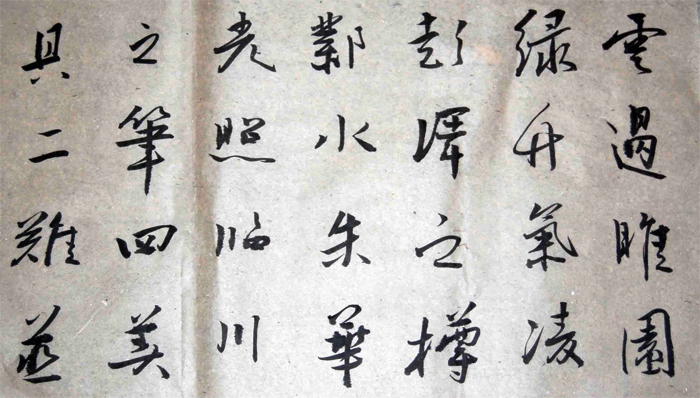 雲遏睢園
绿竹氣凌
彭澤之樽
鄴水朱華
光照临川
之筆四美
具二難並